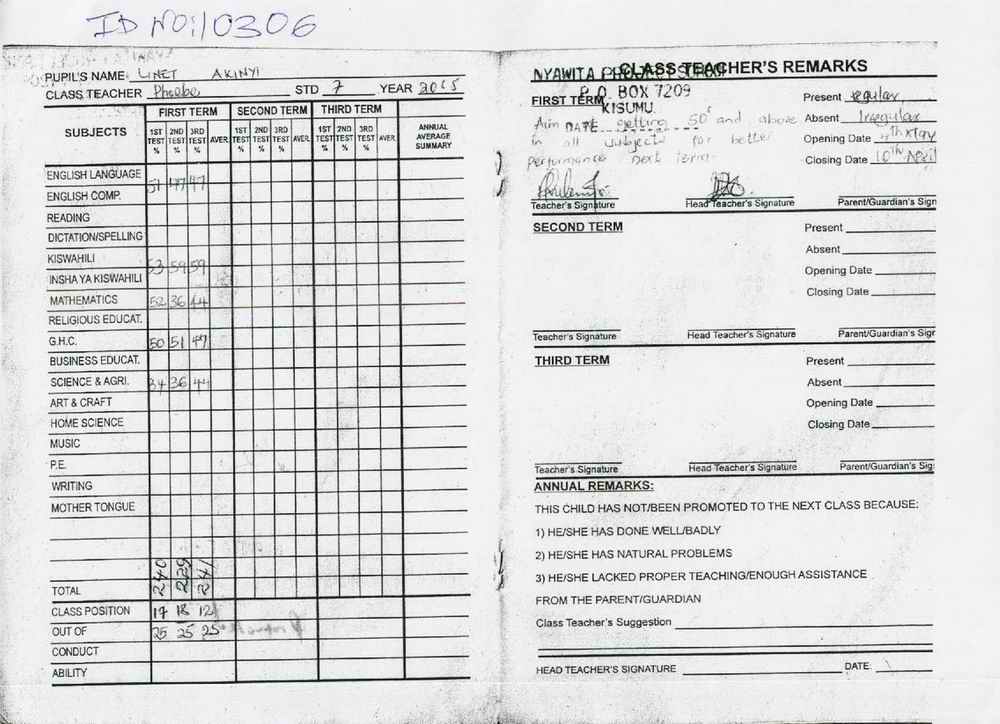 ID NO:10306
PUPIL'S NAME: LINET AKINYI
CLASS TEACHER Phoebe STD 7 YEAR 2015
SUBJECTS
FIRST TERM SECOND TERM THIRD TERM
1ST TEST % 2ND TEST % 3RD TEST % AVER. 1ST TEST % 2ND TEST % 3RD TEST % AVER. 1ST TEST % 2ND TEST % 3RD TEST % AVER.
ANNUAL AVERAGE SUMMARY
ENGLISH LANGUAGE
51 47 47
ENGLISH COMP.
READING
DICTATION/SPELLING
KISWAHILI
53 59 59
INSHA YA KISWAHILI
MATHEMATICS 52 36 44
RELIGIOUS EDUCAT.
G.H.C. 50 51 47
BUSINESS EDUCAT.
SCIENCE & AGRI. 34 36 44
ART & CRAFT
HOME SCIENCE
MUSIC
P.E.
WRITING
MOTHER TONGUE
TOTAL 240 229 241
CLASS POSITION 17 18 12
OUT OF 25 25 25
CONDUCT
ABILITY
CLASS TEACHER'S REMARKS
NYAWITA
P.O. BOX 7209
KISUMU
DATE
FIRST TERM
Aim getting 50 and above
in all subjects for better
performance next term.
Present regular
Absent Irregular
Opening Date May
Closing Date 10th April
Teacher's Signature Head Teacher's Signature Parent/Guardian's Sign
SECOND TERM
Present
Absent
Opening Date
Closing Date
Teacher's Signature Head Teacher's Signature Parent/Guardian's Sign
THIRD TERM
Present
Absent
Opening Date
Closing Date
Teacher's Signature Head Teacher's Signature Parent/Guardian's Sig
ANNUAL REMARKS:
THIS CHILD HAS NOT/BEEN PROMOTED TO THE NEXT CLASS BECAUSE:
1) HE/SHE HAS DONE WELL/BADLY
2) HE/SHE HAS NATURAL PROBLEMS
3) HE/SHE LACKED PROPER TEACHING/ENOUGH ASSISTANCE
FROM THE PARENT/GUARDIAN
Class Teacher's Suggestion
HEAD TEACHER'S SIGNATURE DATE: